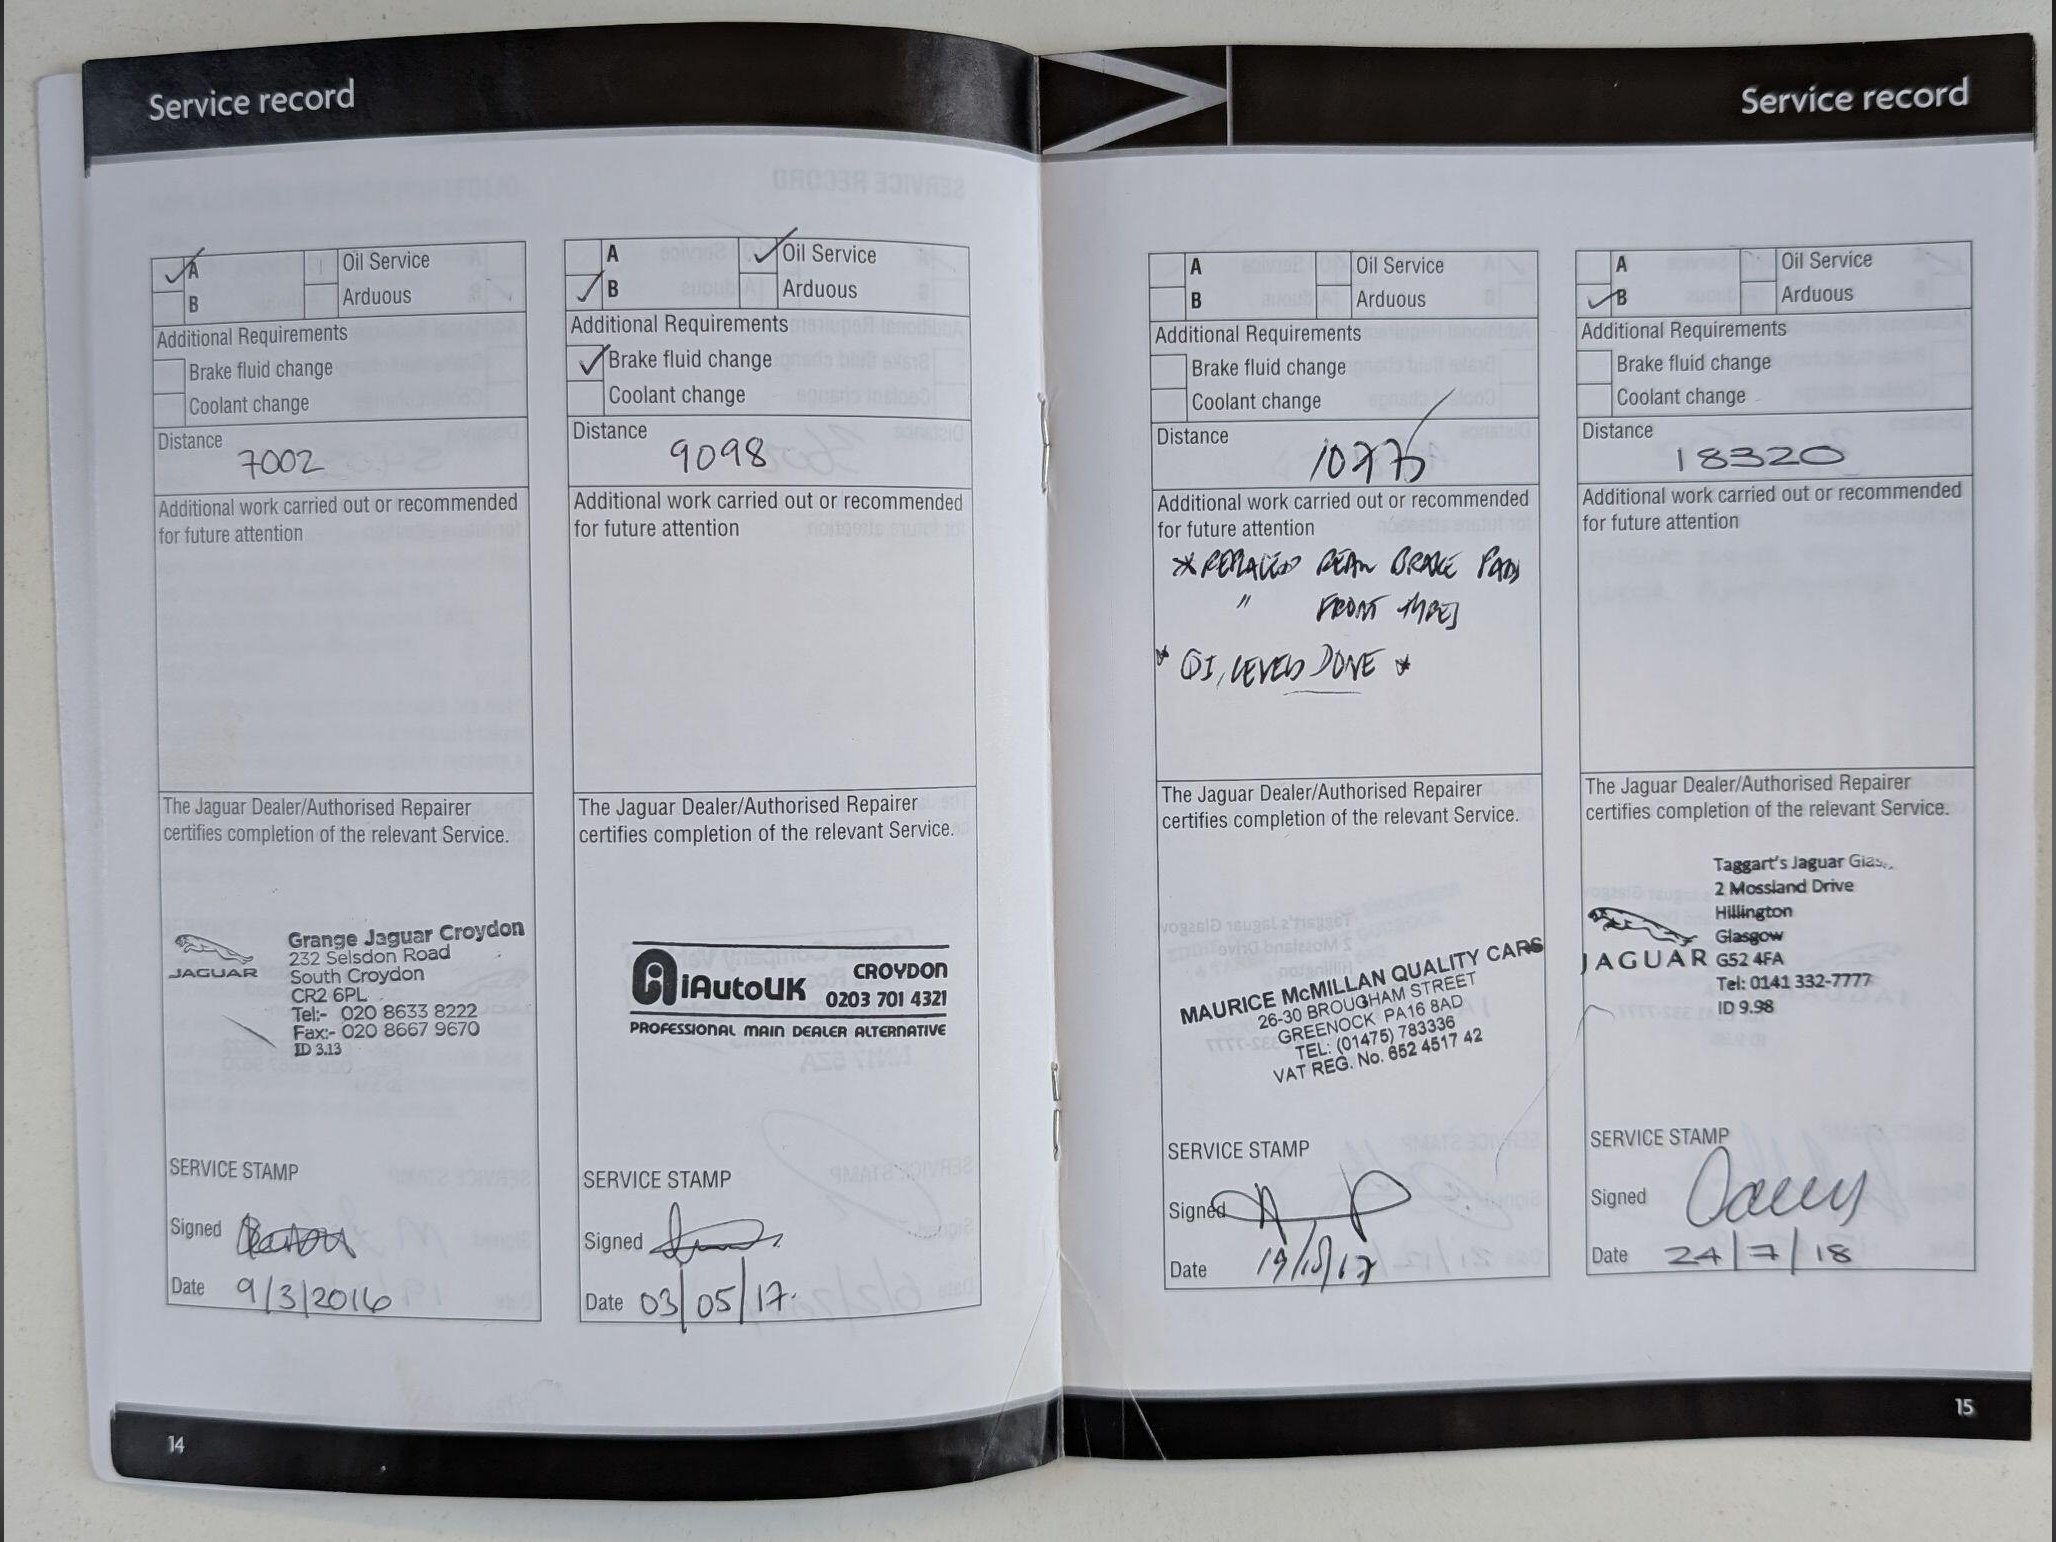 Service record
A
Oil Service
B
Arduous
Additional Requirements
Brake fluid change
Coolant change
Distance
7002
Additional work carried out or recommended
for future attention
The Jaguar Dealer/Authorised Repairer
certifies completion of the relevant Service.
JAGUAR
Grange Jaguar Croydon
232 Selsdon Road
South Croydon
CR2 6PL
Tel:- 020 8633 8222
Fax:- 020 8667 9670
ID 3.13
SERVICE STAMP
Signed
Date 9/3/2016
A
Oil Service
B
Arduous
Additional Requirements
Brake fluid change
Coolant change
Distance
9098
Additional work carried out or recommended
for future attention
The Jaguar Dealer/Authorised Repairer
certifies completion of the relevant Service.
iAutoUK
CROYDON
0203 701 4321
PROFESSIONAL MAIN DEALER ALTERNATIVE
SERVICE STAMP
Signed
Date 03/05/17.
14
Service record
A
Oil Service
B
Arduous
Additional Requirements
Brake fluid change
Coolant change
Distance
10775
Additional work carried out or recommended
for future attention
* REPLACED REAR BRAKE PADS
" FRONT TYRES
* LEVELS DONE *
The Jaguar Dealer/Authorised Repairer
certifies completion of the relevant Service.
MAURICE McMILLAN QUALITY CARS
26-30 BROUGHAM STREET
GREENOCK PA16 8AD
TEL: (01475) 783336
VAT REG. No. 652 4517 42
SERVICE STAMP
Signed
Date
A
Oil Service
B
Arduous
Additional Requirements
Brake fluid change
Coolant change
Distance
18320
Additional work carried out or recommended
for future attention
The Jaguar Dealer/Authorised Repairer
certifies completion of the relevant Service.
JAGUAR
Taggart's Jaguar
2 Mossland Drive
Hillington
Glasgow
G52 4FA
Tel: 0141 332-7777
ID 9.98
SERVICE STAMP
Signed
Date 24/7/18
15